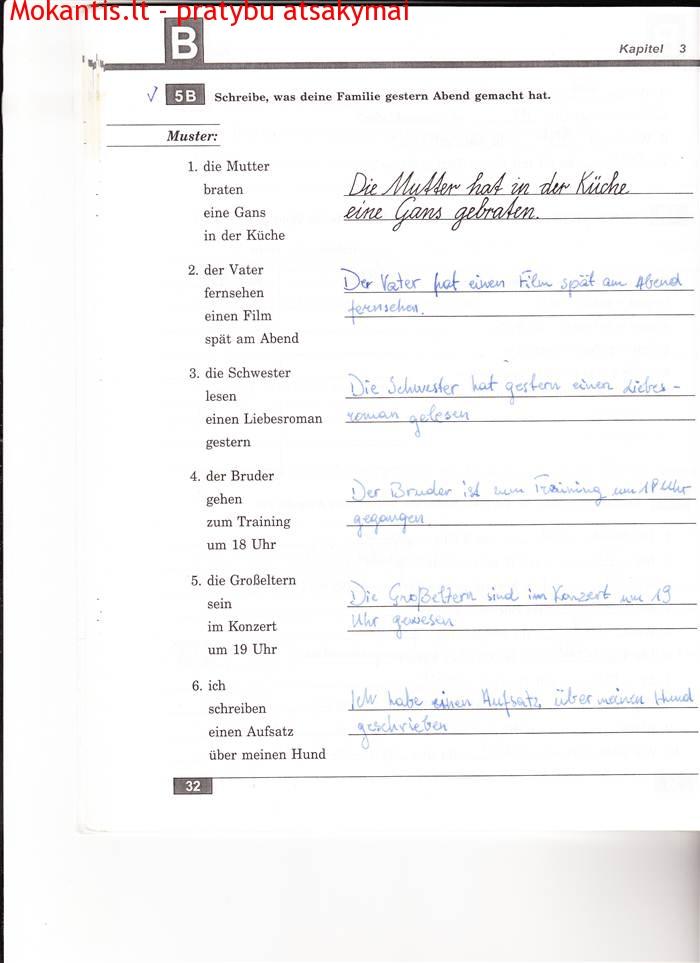 Mokantis.lt - pratybu atsakymai
B
Kapitel 3
5B Schreibe, was deine Familie gestern Abend gemacht hat.
Muster:
1. die Mutter
braten
eine Gans
in der Küche
Die Mutter hat in der Küche
eine Gans gebraten.
2. der Vater
fernsehen
einen Film
spät am Abend
Der Vater hat einen Film spät am Abend
fernsehen.
3. die Schwester
lesen
einen Liebesroman
gestern
Die Schwester hat gestern einen Liebes-
roman gelesen
4. der Bruder
gehen
zum Training
um 18 Uhr
Der Bruder ist zum Training um 18 Uhr
gegangen
5. die Großeltern
sein
im Konzert
um 19 Uhr
Die Großeltern sind im Konzert um 19
Uhr gewesen
6. ich
schreiben
einen Aufsatz
über meinen Hund
Ich habe einen Aufsatz über meinen Hund
geschrieben
32